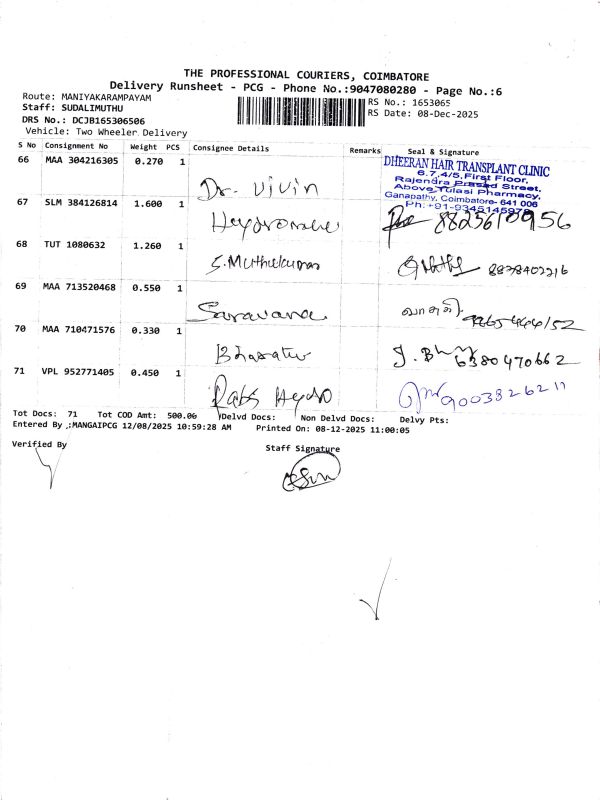 THE PROFESSIONAL COURIERS, COIMBATORE
Delivery Runsheet - PCG - Phone No.:9047080280 - Page No.:6
Route: MANIYAKARAMPAYAM
RS No.: 1653065
Staff: SUDALIMUTHU
RS Date: 08-Dec-2025
DRS No.: DCJB165306506
Vehicle: Two Wheeler Delivery
S No Consignment No Weight PCS Consignee Details Remarks Seal & Signature
66 MAA 304216305 0.270 1 Dr. Vivin
DHEERAN HAIR TRANSPLANT CLINIC
6,7,4/5, First Floor,
Rajendra Prasad Street,
Above Tulasi Pharmacy,
Ganapathy, Coimbatore- 641 006
Ph: +91-9345145978
67 SLM 384126814 1.600 1
68 TUT 1080632 1.260 1 S.Muthukumar 8878402216
69 MAA 713520468 0.550 1 Saravana
70 MAA 710471576 0.330 1 Bharath 6380470662
71 VPL 952771405 0.450 1 Rabs Hydro 9003826211
Tot Docs: 71 Tot COD Amt: 500.00 Delvd Docs: Non Delvd Docs: Delvy Pts:
Entered By :MANGAIPCG 12/08/2025 10:59:28 AM Printed On: 08-12-2025 11:00:05
Verified By
Staff Signature